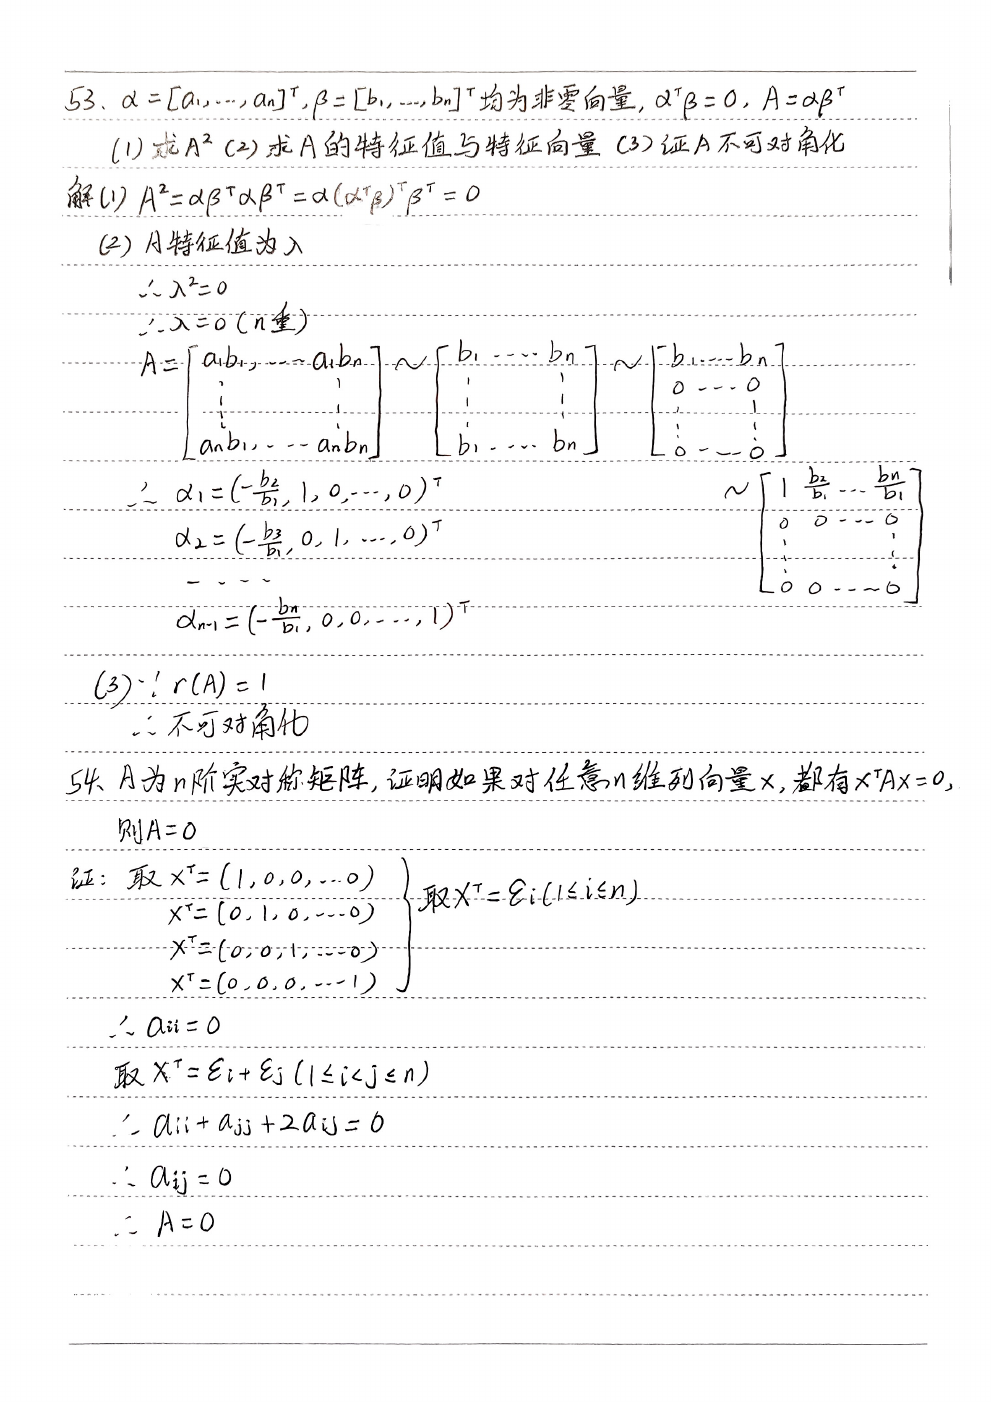 53、α=[a₁,...,aₙ]ᵀ,β=[b₁,...,bₙ]ᵀ均为非零向量,αᵀβ=0,A=αβᵀ
(1)求A² (2)求A的特征值与特征向量 (3)证A不可对角化
解(1) A²=αβᵀαβᵀ=α(αᵀβ)ᵀβᵀ=0
(2) A特征值为λ
∴λ²=0
∴λ=0(n重)
A=[a₁b₁,...a₁bₙ ⋮ ⋮ aₙb₁,...aₙbₙ]~[b₁....bₙ ⋮ ⋮ b₁....bₙ]~[b₁....bₙ 0---0 ⋮ ⋮ 0---0]
~[1 b₂/b₁ ... bₙ/b₁ 0 0---0 ⋮ ⋮ 0 0---0]
∴ α₁=(-b₂/b₁,1,0,...,0)ᵀ
α₂=(-b₃/b₁,0,1,...,0)ᵀ
----
αₙ₋₁=(-bₙ/b₁,0,0,...,1)ᵀ
(3)∵r(A)=1
∴不可对角化
54、A为n阶实对称矩阵,证明如果对任意n维列向量x,都有xᵀAx=0,
则A=0
证: 取xᵀ=(1,0,0,...0)
xᵀ=(0,1,0,...0)
xᵀ=(0,0,1,...0)
xᵀ=(0,0,0,...1)
}取xᵀ=εi(1≤i≤n)
∴aii=0
取xᵀ=εi+εj(1≤i<j≤n)
∴aii+ajj+2aij=0
∴aij=0
∴A=0